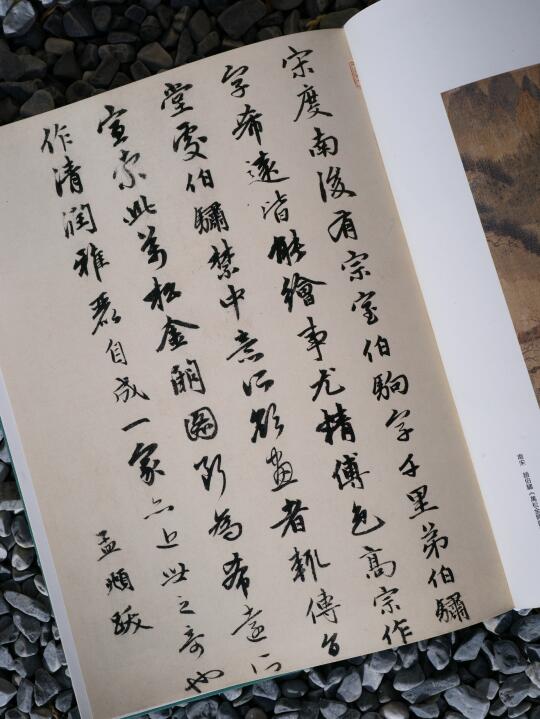 宋度南後有宗室伯駒字千里弟伯驌
字希遠皆能繪事尤精傅色高宗作
堂處伯驌禁中意所欲畫者輒傳旨
宣索此萬松金闕圖斷為希遠所
作清潤雅麗自成一家亦近世之奇也
孟頫跋
南宋 趙伯驌《萬松金闕